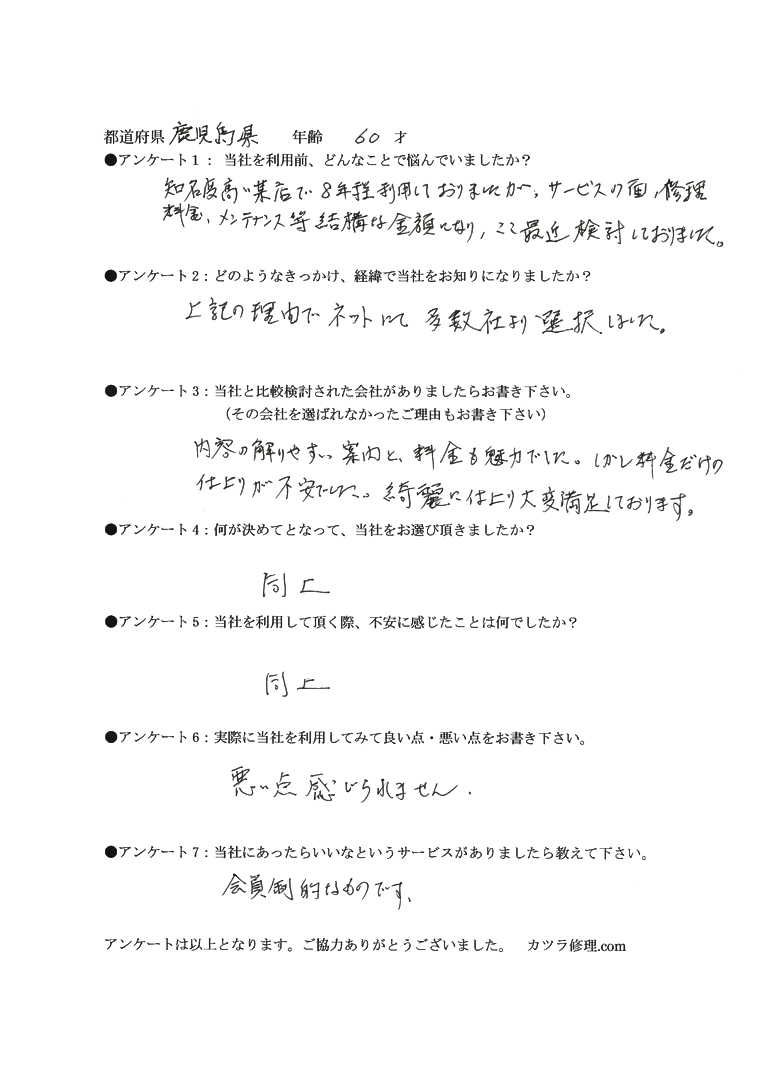 都道府県 鹿児島県 年齢 60才
●アンケート1：当社を利用前、どんなことで悩んでいましたか？
知名度高い某店で8年程利用しておりましたが、サービスの面、修理
料金、メンテナンス等結構な金額になり、ここ最近検討しておりました。
●アンケート2：どのようなきっかけ、経緯で当社をお知りになりましたか？
上記の理由でネットにて多数社より選択しました。
●アンケート3：当社と比較検討された会社がありましたらお書き下さい。
（その会社を選ばれなかったご理由もお書き下さい）
内容の解りやすい案内と、料金も魅力でした。しかし料金だけの
仕上りが不安でした。綺麗に仕上り大変満足しております。
●アンケート4：何が決めてとなって、当社をお選び頂きましたか？
同上
●アンケート5：当社を利用して頂く際、不安に感じたことは何でしたか？
同上
●アンケート6：実際に当社を利用してみて良い点・悪い点をお書き下さい。
悪い点感じられません.
●アンケート7：当社にあったらいいなというサービスがありましたら教えて下さい。
会員制的なものです.
アンケートは以上となります。ご協力ありがとうございました。 カツラ修理.com